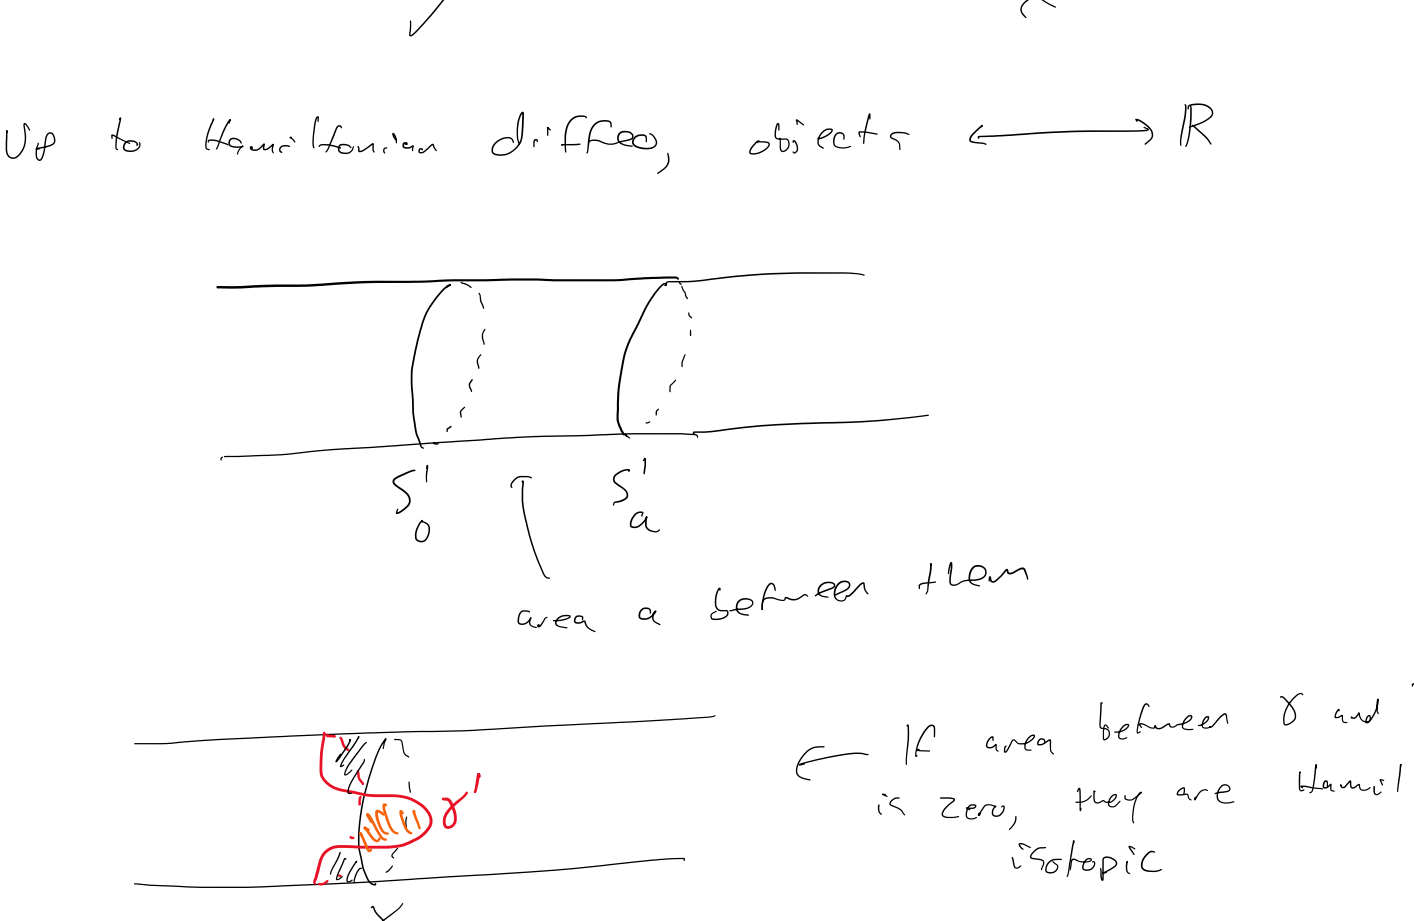 Up to Hamiltonian diffeo, objects ⟷ ℝ
S¹₀ S¹ₐ
area a between them
← If area between γ and
is zero, they are Hamil
isotopic
γ'